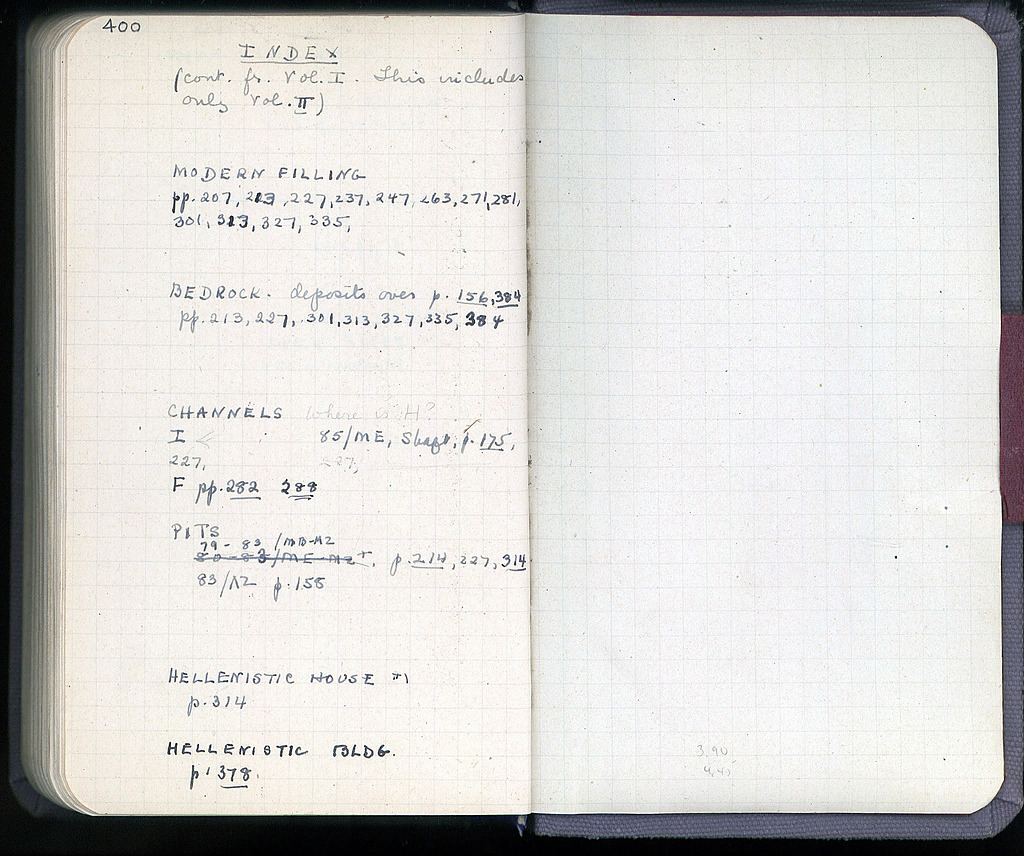 400
INDEX
(cont. fr. Vol. I. This includes
only Vol. II)
MODERN FILLING
pp. 207, 213, 227, 237, 247, 263, 271, 281,
301, 313, 327, 335,
BEDROCK. deposits over p. 156, 384
pp. 213, 227, 301, 313, 327, 335, 384
CHANNELS where is H?
I 85/ME, Shaft, p. 175,
227, 227,
F pp. 282 288
PITS
79 - 83 /MB-MZ
80-83/ME-MZ+, p. 214, 227, 314
83/ p. 158
HELLENISTIC HOUSE #1
p. 314
HELLENISTIC BLDG.
p. 378.
3,90
4,45